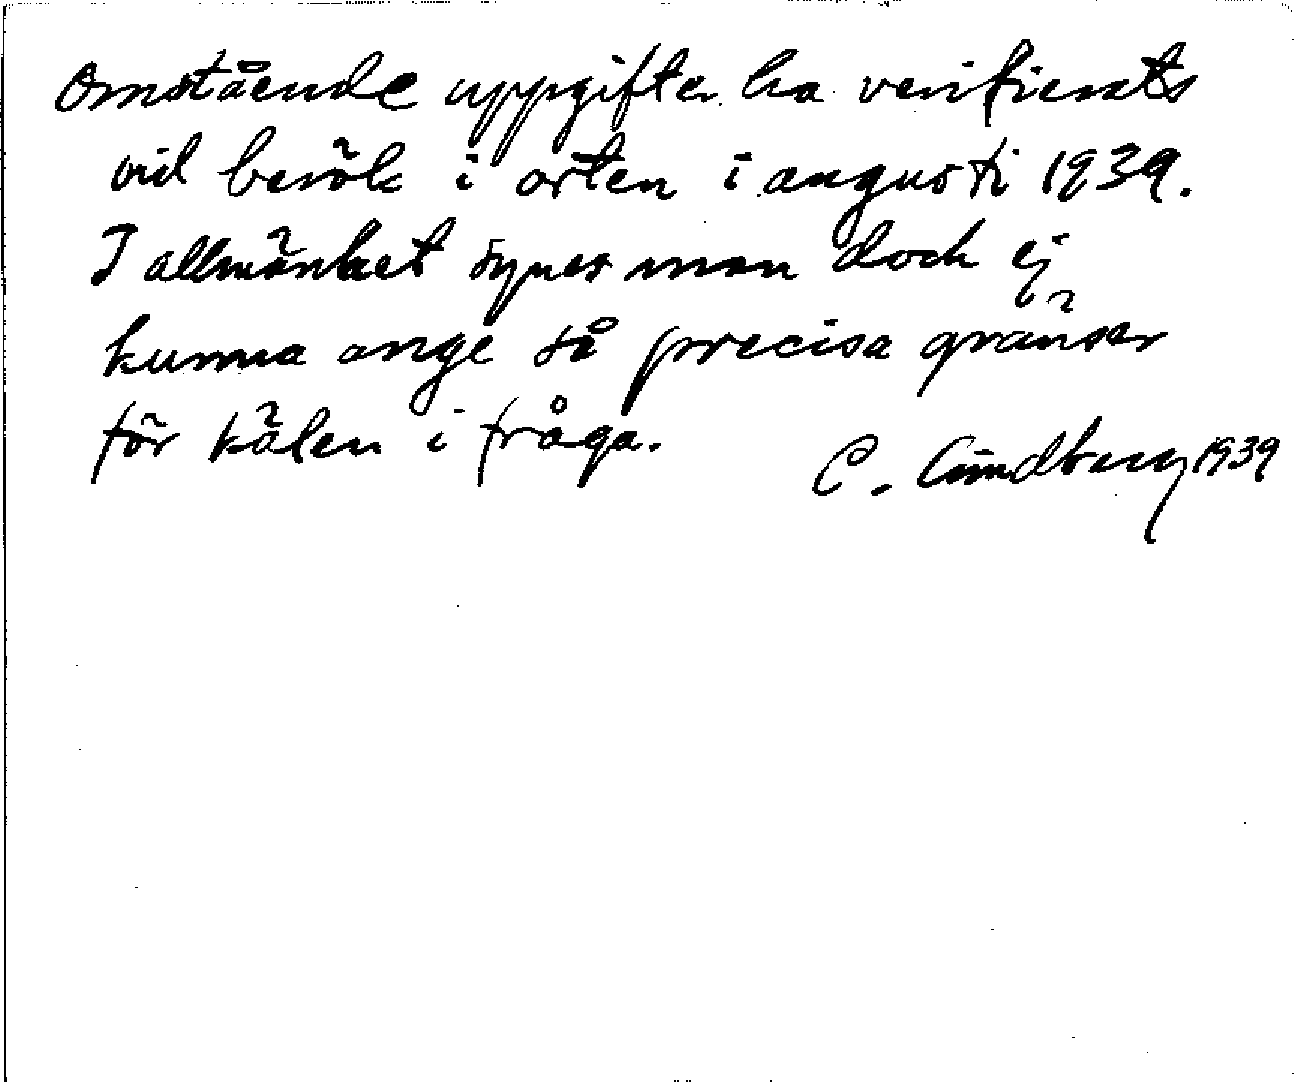 Omstående uppgifter ha verifierats
vid besök i orten i augusti 1939.
I allmänhet synes man dock ej
kunna ange så precisa gränser
för kälen i fråga.
C. Lundberg 1939